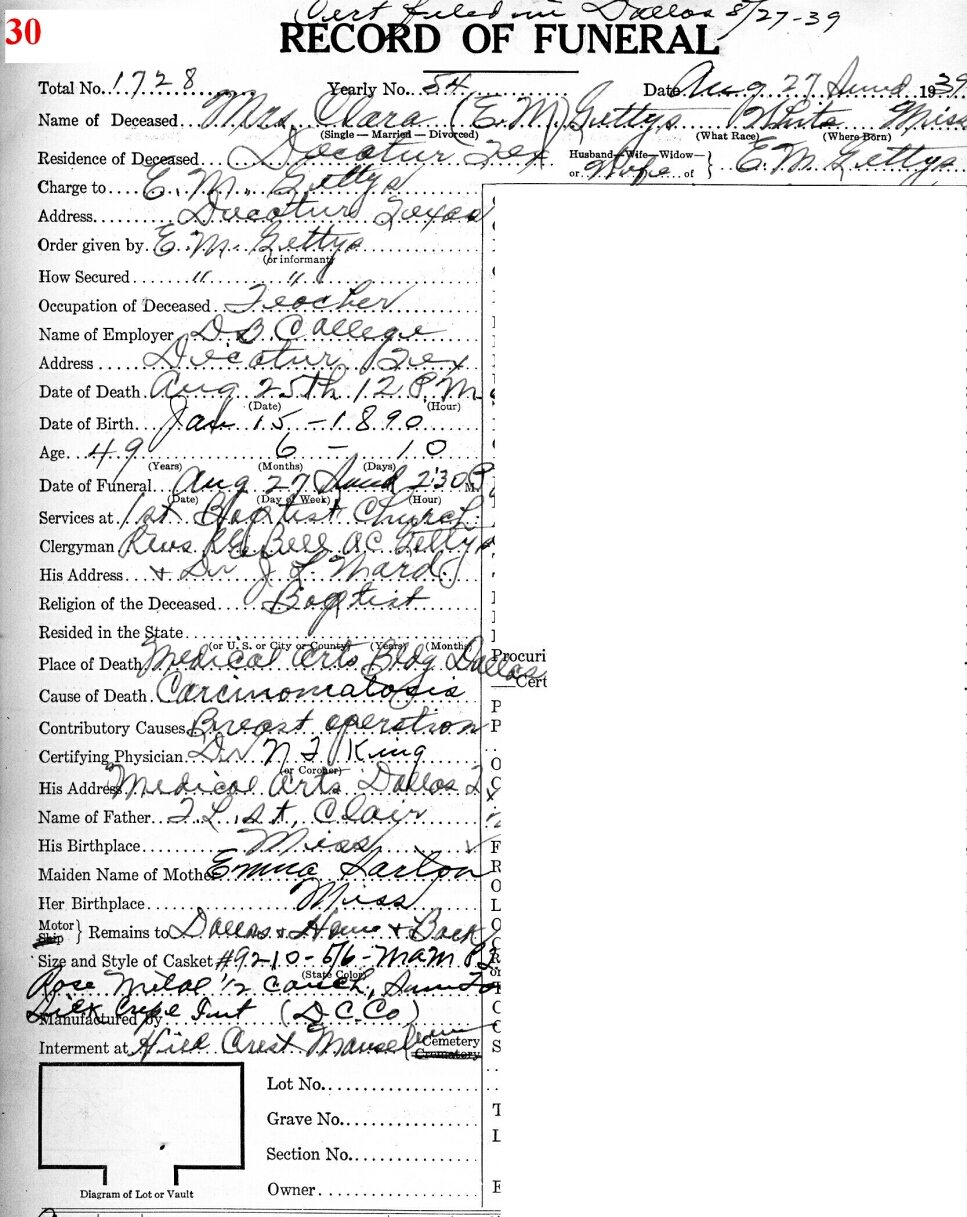 30
Cert filed in Dallas 8/27-39
RECORD OF FUNERAL
Total No. 1728 Yearly No. 54 Date Aug 27 Sund 1939
Name of Deceased Mrs Clara (E.M.) Gettys White Miss
(Single — Married — Divorced) (What Race) (Where Born)
Residence of Deceased Decatur Tex Husband—Wife—Widow— or Wife of } E.M. Gettys
Charge to E.M. Gettys
Address Decatur Texas
Order given by E.M. Gettys
(or informant)
How Secured " "
Occupation of Deceased Teacher
Name of Employer D.B. College
Address Decatur Tex
Date of Death Aug 25th 12 P.M
(Date) (Hour)
Date of Birth Jan 15 - 1890
Age 49 6 - 10
(Years) (Months) (Days)
Date of Funeral Aug 27 Sund 2:30 P M.
(Date) (Day of Week) (Hour)
Services at 1st Baptist Church
Clergyman Revs Bell AC Gettys
His Address + Dr J L Ward
Religion of the Deceased Baptist
Resided in the State
(or U. S. or City or County) (Years) (Months)
Place of Death Medical Arts Bldg Dallas
Procuri
Cert
Cause of Death Carcinomatosis
Contributory Causes Breast operation
Certifying Physician Dr N J King
(or Coroner)
His Address Medical Arts Dallas
Name of Father T L St. Clair
His Birthplace Miss
Maiden Name of Mother Emma Harlon
Her Birthplace Miss
Motor Ship } Remains to Dallas & Home & Back
Size and Style of Casket #92-10-5/6-
(State Color)
Rose Metal 1/2 Couch,
Silk Crepe Int (D.C.Co)
Manufactured by
Interment at Hill Crest Mausoleum Cemetery
Crematory
Lot No.
Grave No.
Section No.
Owner
Diagram of Lot or Vault